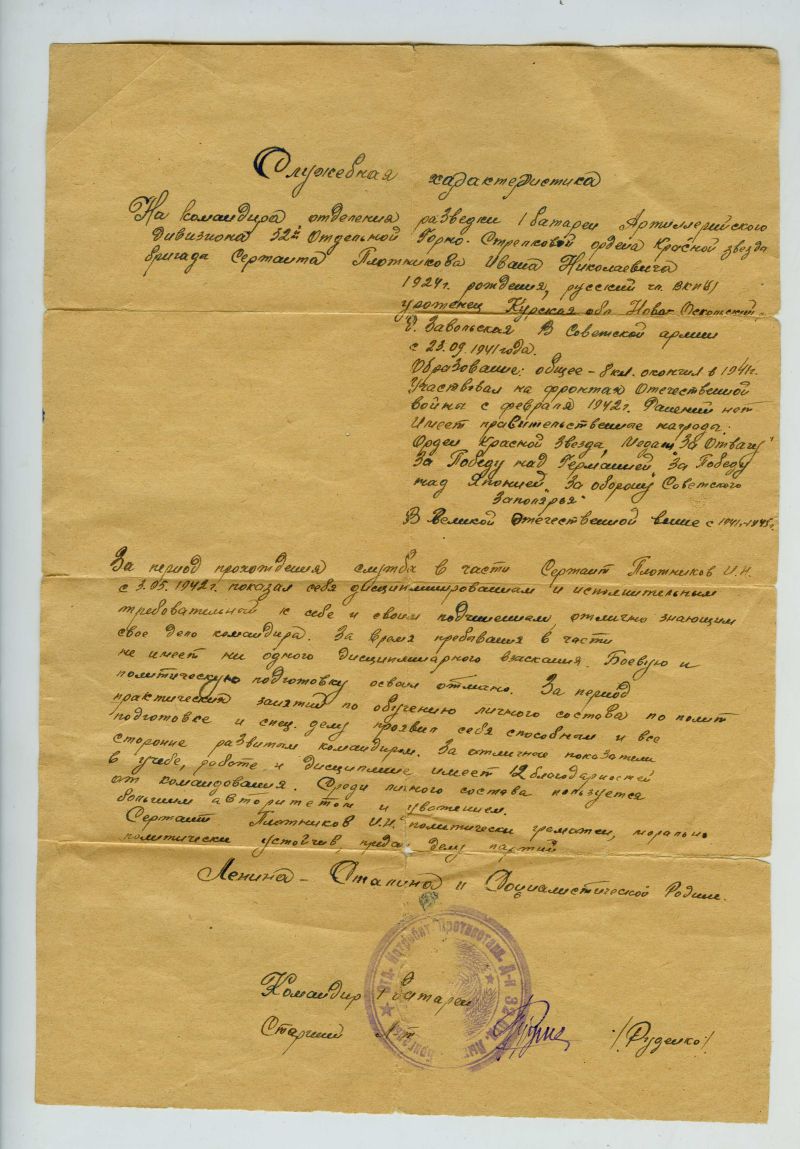 Служебная характеристика
На командира отделения разведки 1 батареи Артиллерийского
дивизиона 32й Отдельной Горно-Стрелковой ордена Красной звезда
бригада Сержанта Плотникова Ивана Николаевича
1924г. рождения, русский чл. ВКП(б)
уроженец Курская обл. Ново-Оскольский
Завольская В Советской армии
с 23.09.1941 года.
Образование: общее - 8 кл. окончил в 1941г.
Участвовал на фронтах Отечественной
войны с февраля 1942г. Ранений нет
Имеет правительственные награда:
Орден Красной Звезда, Медаль "За Отвагу"
"За Победу над Германией" "За Победу
над Японией" "За оборону Советского
Заполярья"
В Великой Отечественной войне с 1941-1945г.
За период прохождения служба в части Сержант Плотников И.Н.
с 3.05.1942г. показал себя дисциплинированным и исполнительным
требовательный к себе и своим подчиненным, отлично знающим
свое дело командира. За время пребывания в части
не имеет ни одного дисциплинарного взыскания. Боевую и
политическую подготовку освоил отлично. За период
практических занятий по обучению личного состава по полит
подготовке и спец. делу проявил себя способным и все
стороние развитым командиром. За отличные показатели
в учебе, работе и дисциплине имеет 12 благодарностей
от командования. Среди личного состава пользуется
большим авторитетом и уважением.
Сержант Плотников И.Н. политически грамотен, морально
политически устойчив, предан делу партии
Ленина - Сталина и Социалистической Родине.
Командир 1 батареи
Старший Лт. /Руденко/
Отд. Истребит. Противотанк. Д-н 32 Бригады